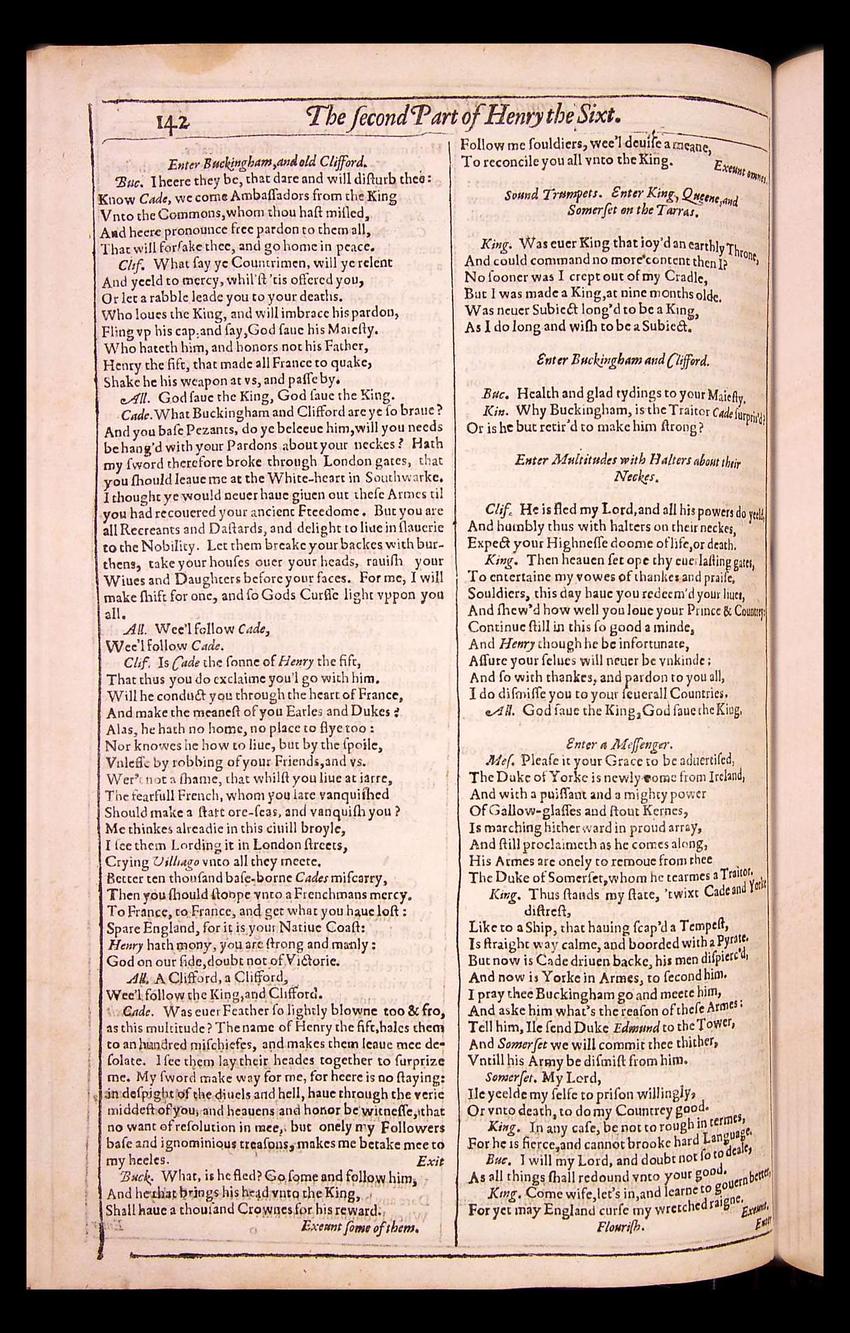 142
The ſecond Part of Henry the Sixt.
Enter Buckingham, and old Clifford.
Buc. I heere they be, that dare and will diſturb thee:
Know Cade, we come Ambaſſadors from the King
Vnto the Commons, whom thou haſt miſled,
And heere pronounce free pardon to them all,
That will forſake thee, and go home in peace.
Clif. What ſay ye Countrimen, will ye relent
And yeeld to mercy, whil'ſt 'tis offered you,
Or let a rabble leade you to your deaths.
Who loues the King, and will imbrace his pardon,
Fling vp his cap, and ſay, God ſaue his Maieſty.
Who hateth him, and honors not his Father,
Henry the fift, that made all France to quake,
Shake he his weapon at vs, and paſſe by.
All. God ſaue the King, God ſaue the King.
Cade. What Buckingham and Clifford are ye ſo braue?
And you baſe Pezants, do ye beleeue him, will you needs
be hang'd with your Pardons about your neckes? Hath
my ſword therefore broke through London gates, that
you ſhould leaue me at the White-heart in Southwarke.
I thought ye would neuer haue giuen out theſe Armes til
you had recouered your ancient Freedome. But you are
all Recreants and Daſtards, and delight to liue in ſlauerie
to the Nobility. Let them breake your backes with bur-
thens, take your houſes ouer your heads, rauiſh your
Wiues and Daughters before your faces. For me, I will
make ſhift for one, and ſo Gods Curſſe light vppon you
all.
All. Wee'l follow Cade,
Wee'l follow Cade.
Clif. Is Cade the ſonne of Henry the fift,
That thus you do exclaime you'l go with him.
Will he conduct you through the heart of France,
And make the meaneſt of you Earles and Dukes?
Alas, he hath no home, no place to flye too:
Nor knowes he how to liue, but by the ſpoile,
Vnleſſe by robbing of your Friends, and vs.
Wer't not a ſhame, that whilſt you liue at iarre,
The fearfull French, whom you late vanquiſhed
Should make a ſtart ore-ſeas, and vanquiſh you?
Me thinkes alreadie in this ciuill broyle,
I ſee them Lording it in London ſtreets,
Crying Villiago vnto all they meete.
Better ten thouſand baſe-borne Cades miſcarry,
Then you ſhould ſtoope vnto a Frenchmans mercy.
To France, to France, and get what you haue loſt:
Spare England, for it is your Natiue Coaſt:
Henry hath mony, you are ſtrong and manly:
God on our ſide, doubt not of Victorie.
All. A Clifford, a Clifford,
Wee'l follow the King, and Clifford.
Cade. Was euer Feather ſo lightly blowne too & fro,
as this multitude? The name of Henry the fift, hales them
to an hundred miſchiefes, and makes them leaue mee de-
ſolate. I ſee them lay their heades together to ſurprize
me. My ſword make way for me, for heere is no ſtaying:
in deſpight of the diuels and hell, haue through the verie
middeſt of you, and heauens and honor be witneſſe, that
no want of reſolution in mee, but onely my Followers
baſe and ignominious treaſons, makes me betake mee to
my heeles. Exit
Buck. What, is he fled? Go ſome and follow him,
And he that brings his head vnto the King,
Shall haue a thouſand Crownes for his reward.
Exeunt ſome of them.
Follow me ſouldiers, wee'l deuiſe a meane,
To reconcile you all vnto the King. Exeunt omnes.
Sound Trumpets. Enter King, Queene, and
Somerſet on the Tarras.
King. Was euer King that ioy'd an earthly Throne,
And could command no more content then I?
No ſooner was I crept out of my Cradle,
But I was made a King, at nine months olde.
Was neuer Subiect long'd to be a King,
As I do long and wiſh to be a Subiect.
Enter Buckingham and Clifford.
Buc. Health and glad tydings to your Maieſty.
Kin. Why Buckingham, is the Traitor Cade ſurpris'd?
Or is he but retir'd to make him ſtrong?
Enter Multitudes with Halters about their
Neckes.
Clif. He is fled my Lord, and all his powers do yeeld,
And humbly thus with halters on their neckes,
Expect your Highneſſe doome of life, or death.
King. Then heauen ſet ope thy euerlaſting gates,
To entertaine my vowes of thankes and praiſe,
Souldiers, this day haue you redeem'd your liues,
And ſhew'd how well you loue your Prince & Countrey:
Continue ſtill in this ſo good a minde,
And Henry though he be infortunate,
Aſſure your ſelues will neuer be vnkinde:
And ſo with thankes, and pardon to you all,
I do diſmiſſe you to your ſeuerall Countries.
All. God ſaue the King, God ſaue the King.
Enter a Meſſenger.
Meſ. Pleaſe it your Grace to be aduertiſed,
The Duke of Yorke is newly come from Ireland,
And with a puiſſant and a mighty power
Of Gallow-glaſſes and ſtout Kernes,
Is marching hitherward in proud array,
And ſtill proclaimeth as he comes along,
His Armes are onely to remoue from thee
The Duke of Somerſet, whom he tearmes a Traitor.
King. Thus ſtands my ſtate, 'twixt Cade and Yorke
diſtreſt,
Like to a Ship, that hauing ſcap'd a Tempeſt,
Is ſtraight way calme, and boorded with a Pyrate.
But now is Cade driuen backe, his men diſpierc'd,
And now is Yorke in Armes, to ſecond him.
I pray thee Buckingham go and meete him,
And aske him what's the reaſon of theſe Armes:
Tell him, Ile ſend Duke Edmund to the Tower,
And Somerſet we will commit thee thither,
Vntill his Army be diſmiſt from him.
Somerſet. My Lord,
Ile yeelde my ſelfe to priſon willingly,
Or vnto death, to do my Countrey good.
King. In any caſe, be not to rough in termes,
For he is fierce, and cannot brooke hard Language.
Buc. I will my Lord, and doubt not ſo to deale,
As all things ſhall redound vnto your good.
King. Come wife, let's in, and learne to gouern better,
For yet may England curſe my wretched raigne.
Flouriſh. Exeunt.
Enter